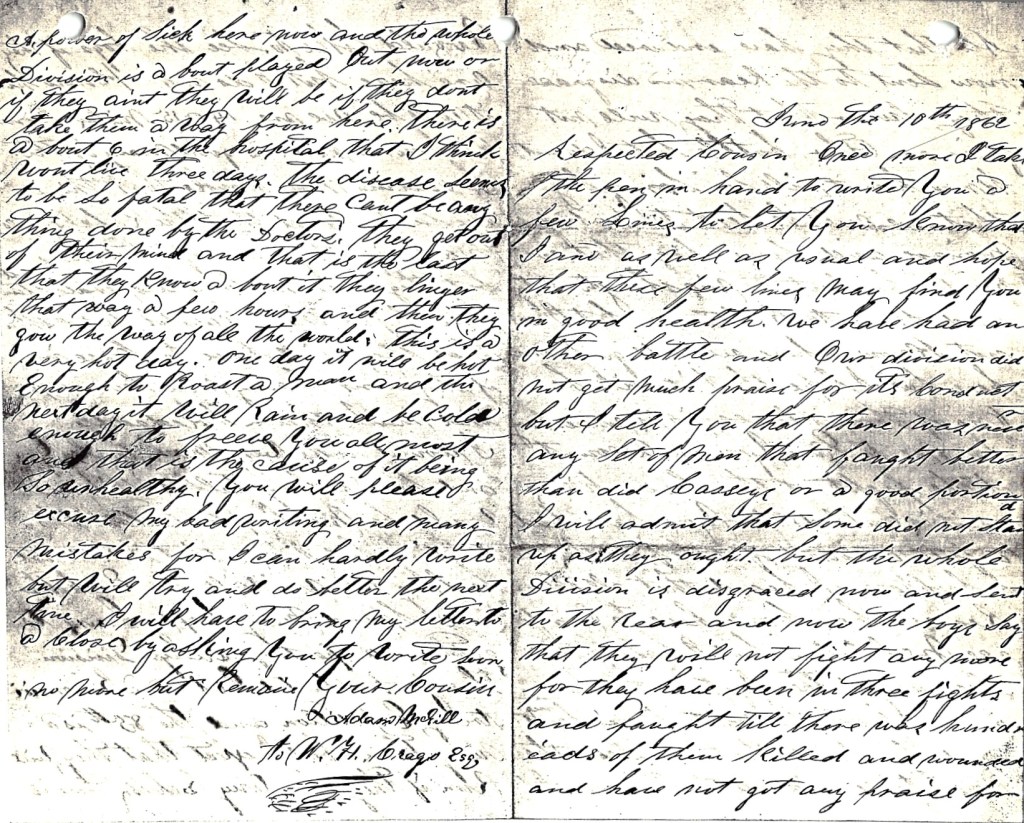 June the 10th 1862
Respected Cousin Once more I take
the pen in hand to write You a
few lines to let You Know that
I am as well as usual and hope
that these few lines may find You
in good health. we have had an
other battle and Our division did
not get much praise for its conduct
but I tell You that there was never
any Set of men that faught better
than did Casseys or a good portion
I will admit that Some did not stand
up as they ought. but the whole
Division is disgraced now and Sent
to the rear and now the boys Say
that they will not fight any more
for they have been in three fights
and faught till there was hund-
reads of them Killed and wounded
and have not got any praise for
A power of Sick here now and the whole
Division is a bout played Out now or
if they aint they will be if they dont
take them a way from here. there is
a bout 6 in the hospital that I think
wont live three days. the disease Seems
to be So fatal that there Cant be any
thing done by the Doctors. they get out
of their mind and that is the last
that they Know a bout it they linger
that way a few hours and then they
gow the way of all the world. this is a
very hot day. one day it will be hot
Enough to Roast a man and the
next day it will Rain and be Cold
enough to freeze You all most
and that is the cause of it being
So unhealthy. You will please
excuse my bad writing and many
mistakes for I can hardly write
but will try and do better the next
time. I will have to bring my letter to
a Close by asking You to write Soon
no more but Remain Your Cousin
J. Adam McGill
to W. H. Crago Esq